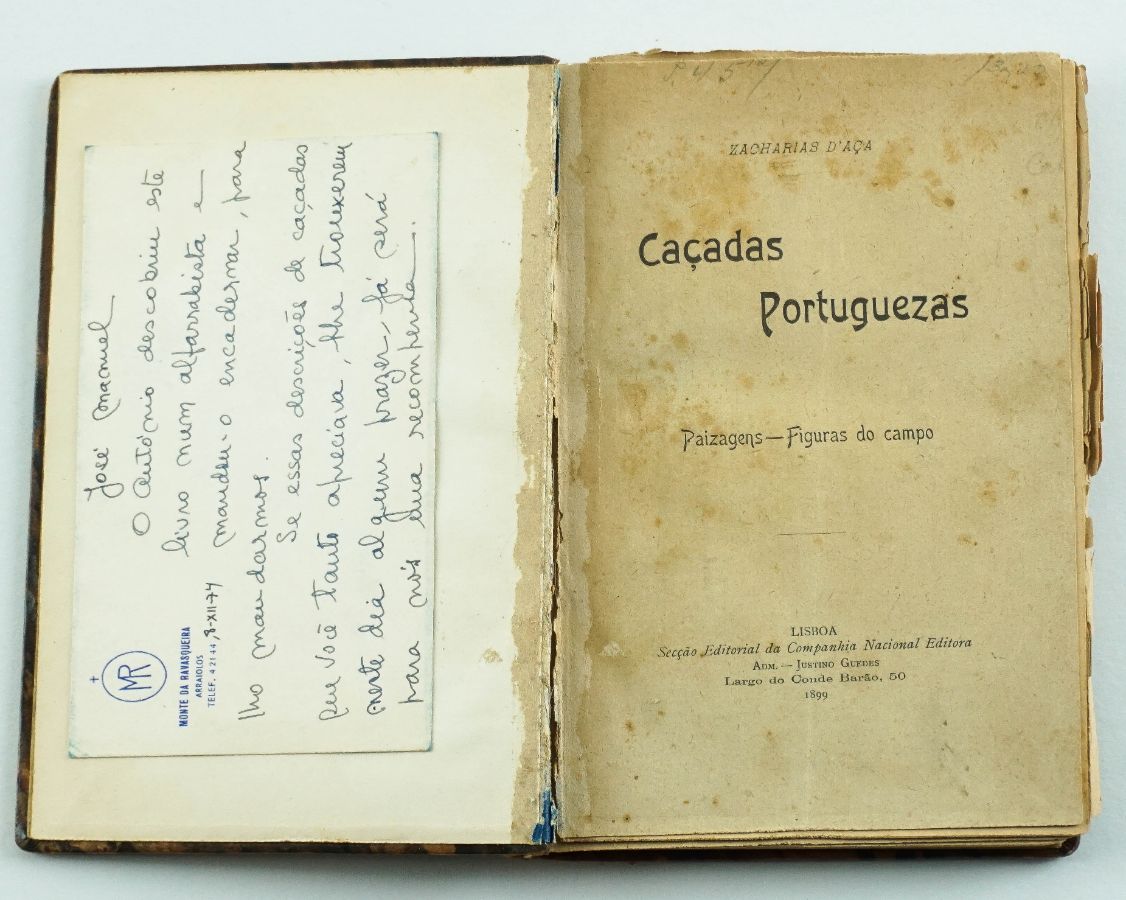 MR
MONTE DA RAVASQUEIRA
ARRAIOLOS
TELEF. 42144, 8-XII-74
José Manuel
O António descobriu este
livro num alfarrabista e
mandou-o encadernar, para
lho mandarmos.
Se essas descrições de caçadas
que você tanto apreciava, lhe trouxerem
neste dia algum prazer, já será
para nós uma recompensa.
ZACHARIAS D'AÇA
Caçadas
Portuguezas
Paizagens—Figuras do campo
LISBOA
Secção Editorial da Companhia Nacional Editora
ADM. — JUSTINO GUEDES
Largo do Conde Barão, 50
1899